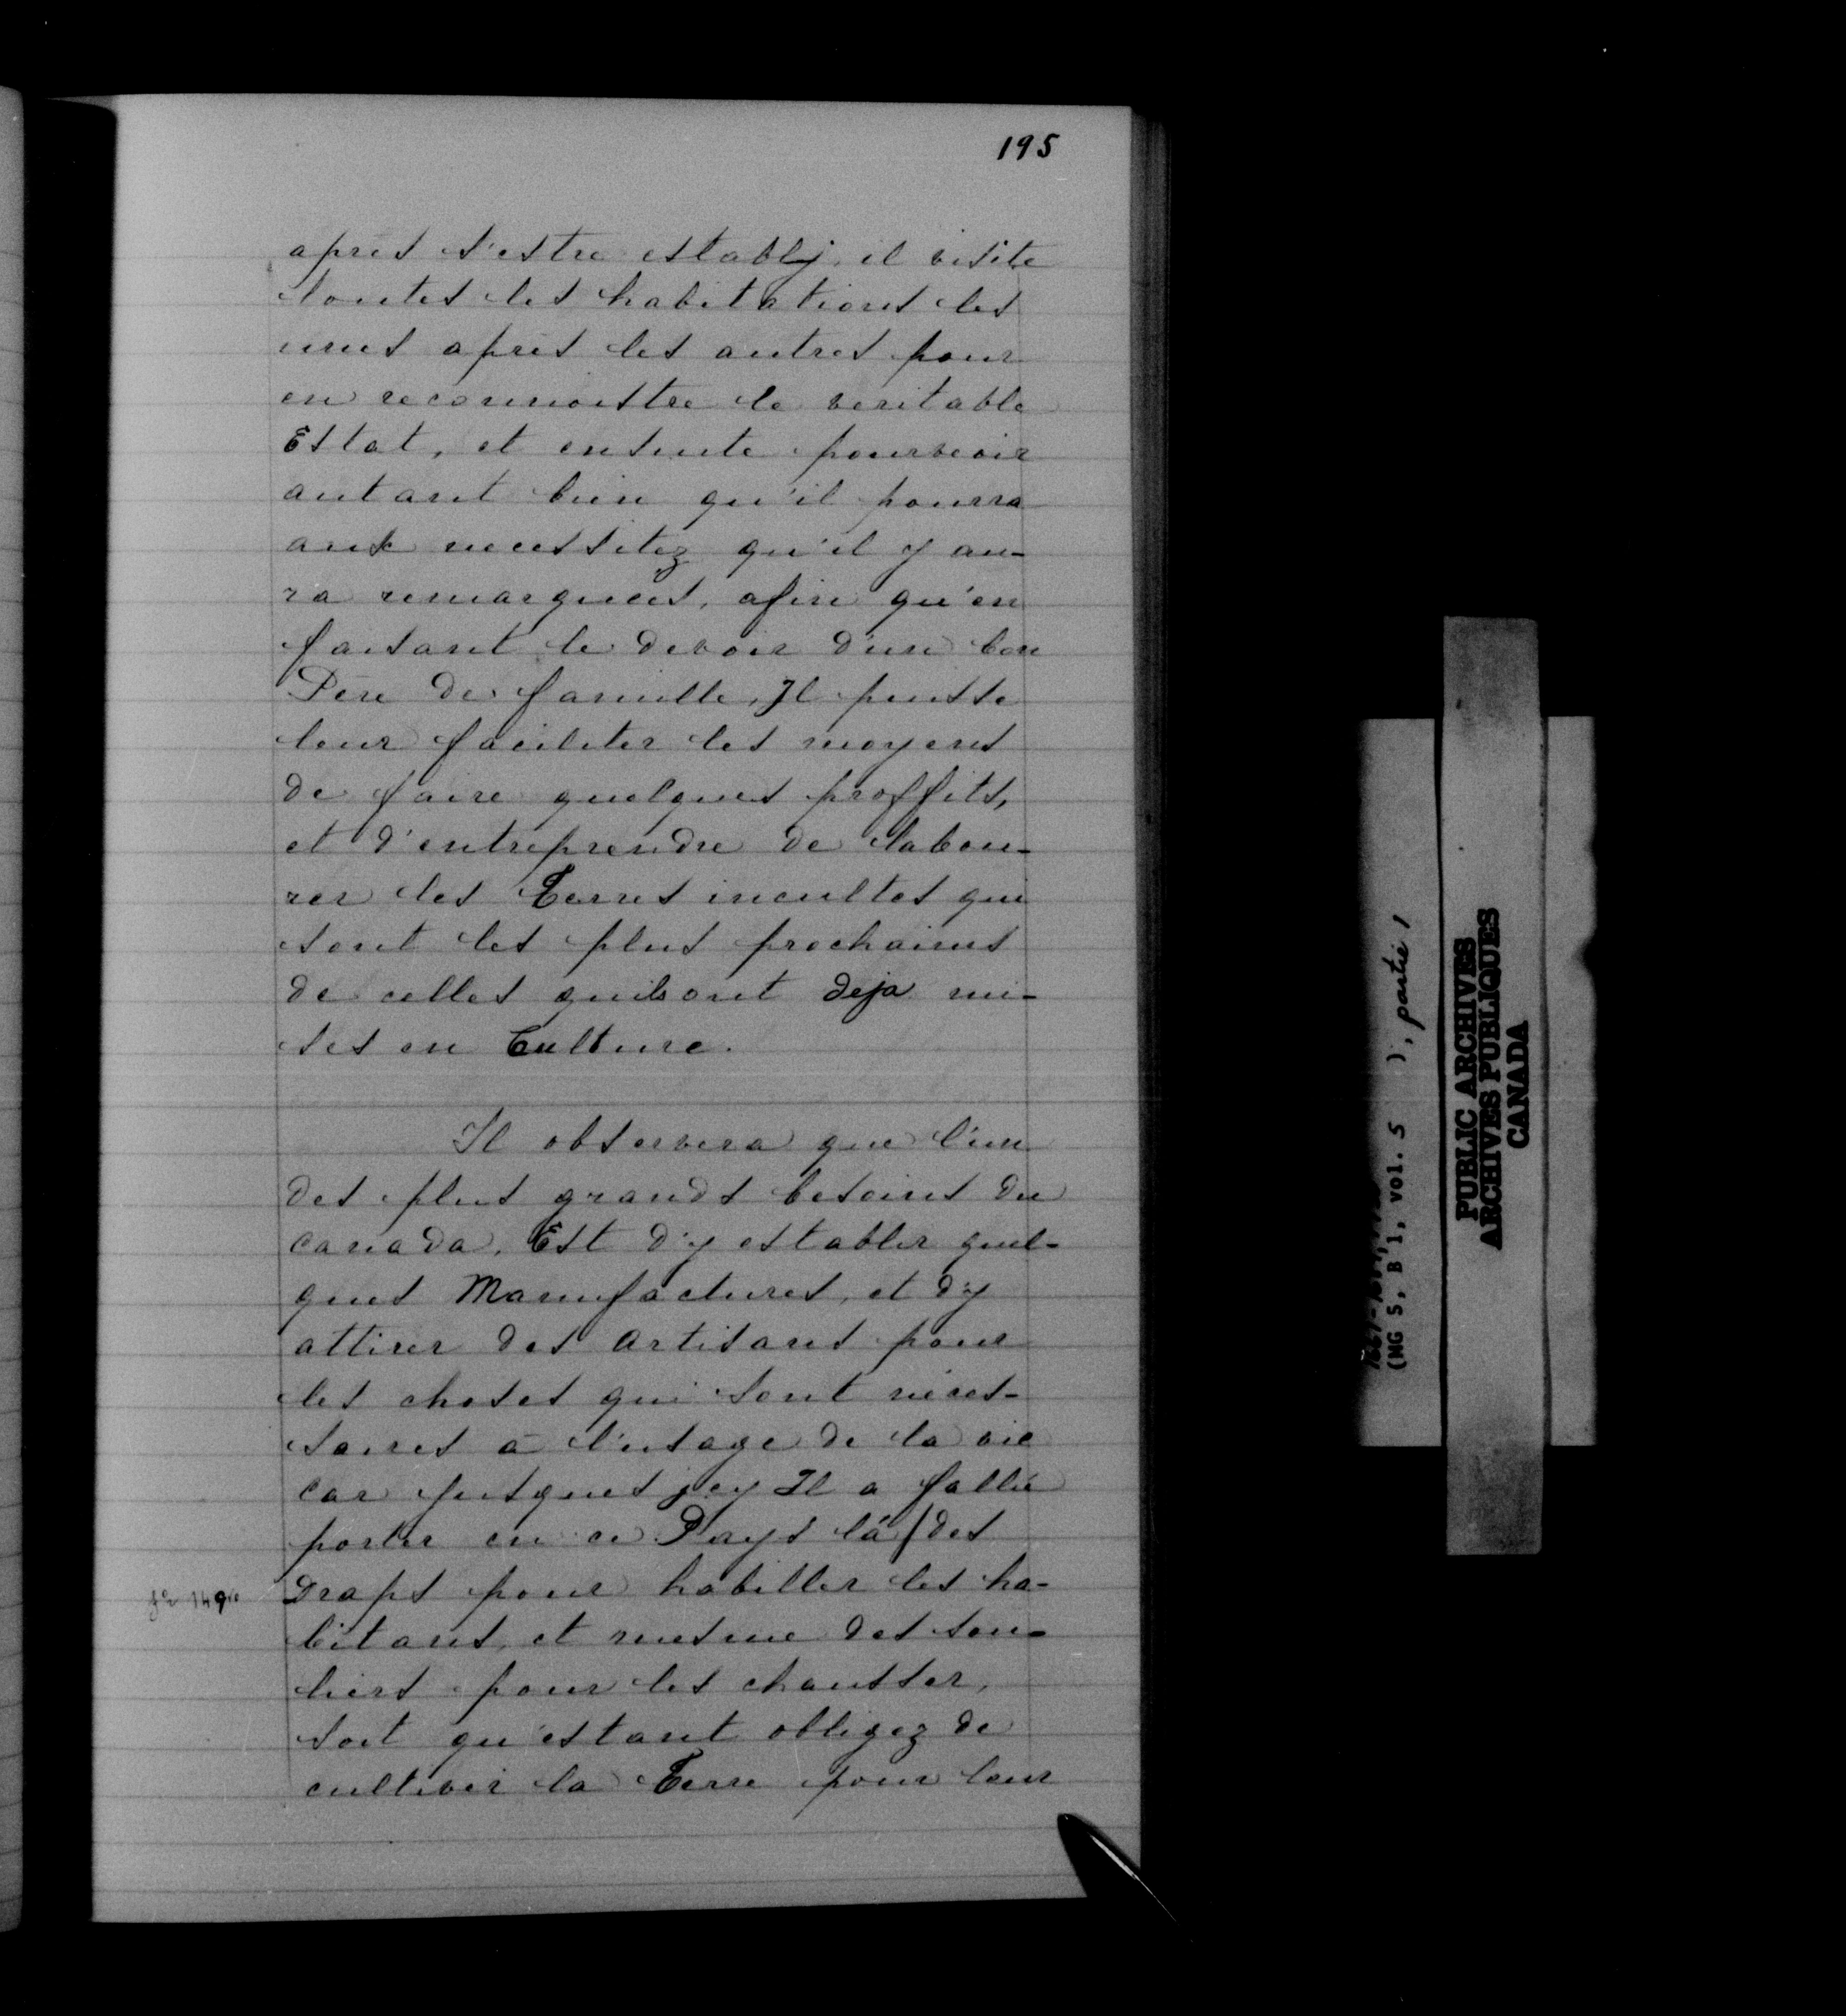 195
après s'estre establÿ, il visite
toutes les habitations les
unes après les autres pour
en reconnoistre le veritable
Estat, et ensuite pourveoir
autant bien qu'il pourra
aux necessitez qu'il y au-
ra remarquées, afin qu'en
faisant le devoir d'un bon
Père de famille, Il puisse
leur faciliter les moyens
de faire quelques proffits,
et d'entreprendre de labou-
rer les Terres incultes qui
sont les plus prochaines
de celles quils ont deja mi-
ses en Culture.
Il observera que l'un
des plus grands besoins du
Canada, Est d'y establir quel-
ques Manufactures, et d'y
attirer des artisans pour
les choses qui sont néces-
saires à l'usage de la vie
car jusques jcy Il a fallu
porter en ce Pays là / des
fo 149vo
Draps pour habiller les ha-
bitans, et mesme des sou-
liers pour les chausser,
soit qu'estant obligez de
cultiver la Terre pour leur
(MG 5, B 1, vol. 5 ), partie 1
PUBLIC ARCHIVES
ARCHIVES PUBLIQUES
CANADA